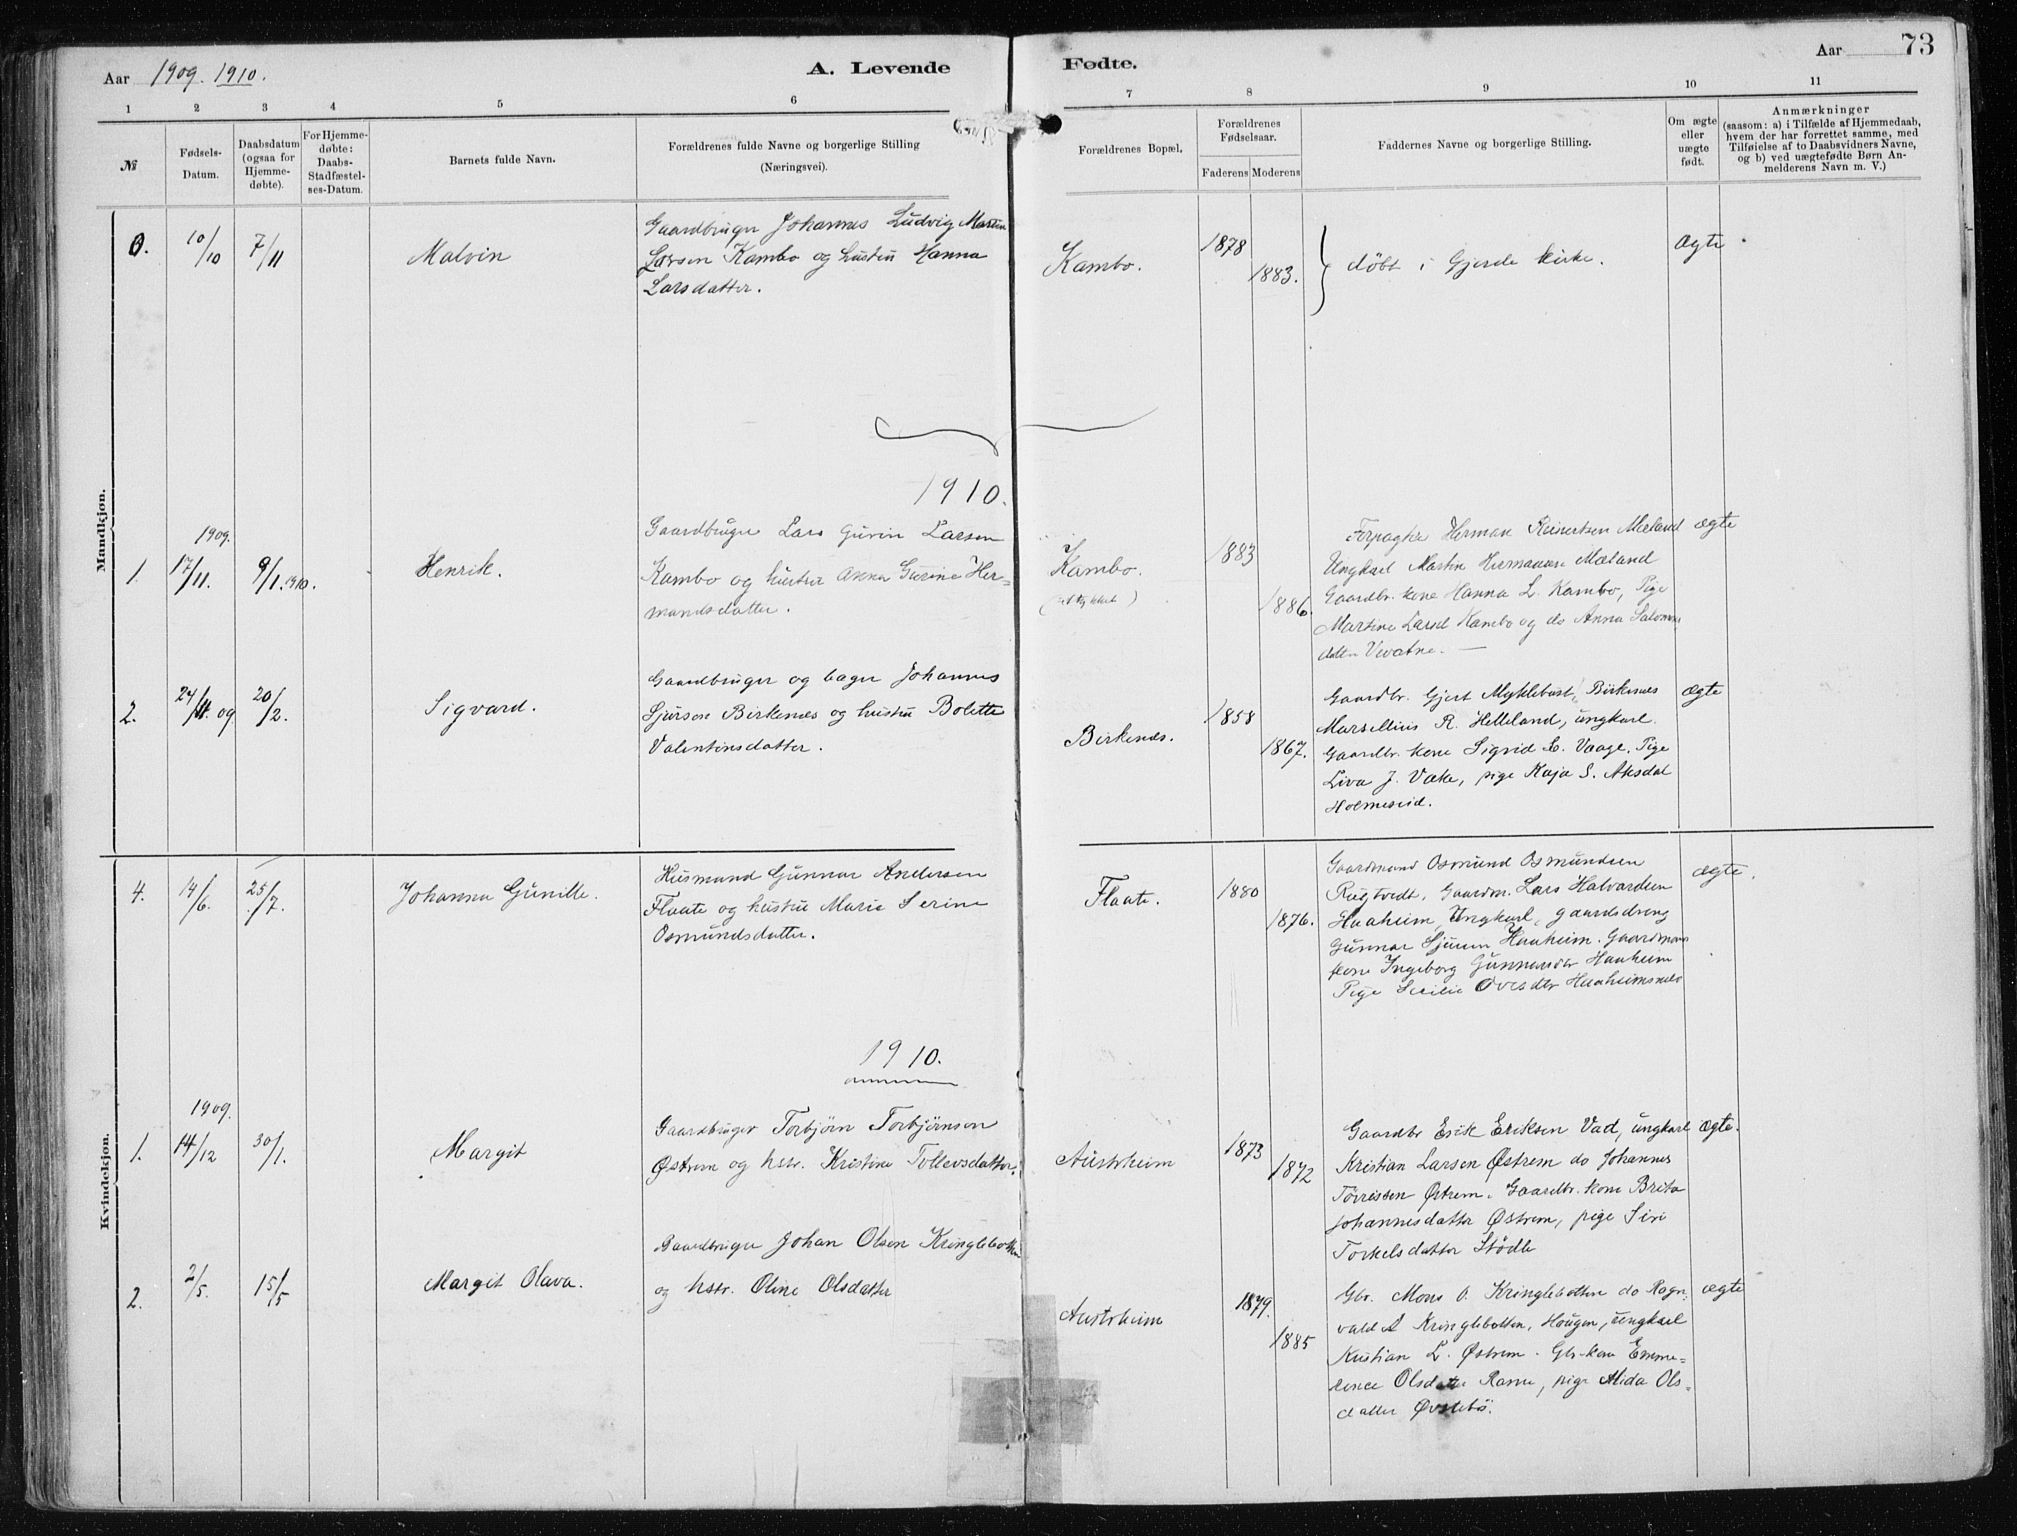 Aar 1909. 1910.
A. Levende
Fødte.
Aar 73
1 2 3 4 5 6 7 8 9 10 11
№
Fødsels-
Datum.
Daabsdatum
(ogsaa for
Hjemme-
døbte).
For Hjemme-
døbte:
Daabs-
Stadfæstel-
ses-Datum.
Barnets fulde Navn.
Forældrenes fulde Navne og borgerlige Stilling
(Næringsvei).
Forældrenes Bopæl.
Forældrenes
Fødselsaar.
Faderens Moderens
Faddernes Navne og borgerlige Stilling.
Om ægte
eller
uægte
født.
Anmærkninger
(saasom: a) i Tilfælde af Hjemmedaab,
hvem der har forrettet samme, med
Tilføielse af to Daabsvidners Navne,
og b) ved uægtefødte Børn An-
melderens Navn m. V.)
Mandkjøn.
0. 10/10 7/11
Malvin
Gaardbruger Johannes Ludvig Martin
Larsen Kambo og hustru Hanna
Larsdatter.
Kambo.
1878
1883.
døbt i Gjerde kirke.
ægte
1910.
1909.
1. 17/11. 9/1. 1910.
Henrik.
Gaardbruger Lars Gurin Larsen
Kambo og hustru Anna Gurine Her=
mandsdatter.
Kambo.
1883
1886.
Forpagter Herman Reinertsen Mæland
Ungkarl Martin Hermansen Mæland
Gaardbr. kone Hanna L. Kambo, Pige
Martine Larsd Kambo og do Anna Salomons
datter Vevatne.
ægte
2. 24/11. og 20/2.
Sigvard.
Gaardbruger og bager Johannes
Sjursen Birkenes og hustru Bolette
Valentinsdatter.
Birkenes.
1858
1867.
Gaardbr. Gjert Myklebust, Birkenes
Marsellius R. Helleland, ungkarl.
Gaardbr. kone Sigrid L. Vaage. Pige
Liva J. Vake, pige Kaja S. Aksdal
Holmeseid.
ægte
Kvindekjøn.
4. 14/6. 25/7.
Johanna Gunille.
Husmand Gunnar Andersen
Flaate og hustru Marie Serine
Osmundsdatter.
Flaate.
1880
1876.
Gaardmand Osmund Osmundsen
Rugtvedt, Gaardm. Lars Halvardsen
Haaheim, Ungkarl, gaardsdreng
Gunnar Sjursen Haaheim. Gaardmans
kone Ingeborg Gunnarsdtr Haaheim
Pige Secilie Ovesdtr Haaheimsnes
ægte.
1910.
1909.
1. 14/12 30/1.
Margit
Gaardbruger Torbjørn Torbjørnsen
Østrem og hstr. Kristine Tollevsdatter.
Austrheim
1873
1872
Gaardbr Erik Eriksen Vad, ungkarl
Kristian Larsen Østrem do Johannes
Tørrissen Østrem. Gaardbr. kone Brita
Johannesdatter Østrem, pige Siri
Torkelsdatter Stødle
ægte.
2. 2/5. 15/5
Margit Olava.
Gaardbruger Johan Olsen Kringlebotten
og hstr. Oline Olsdatter
Austrheim
1879.
1885
Gbr. Mons O. Kringlebotten do Ragn
vald A Kringlebotten, Hougen, ungkarl
Kristian L. Østrem. Gbr-kone Emme=
rence Olsdatter Ramn, pige Alida Ols=
datter Øvstebø.
ægte